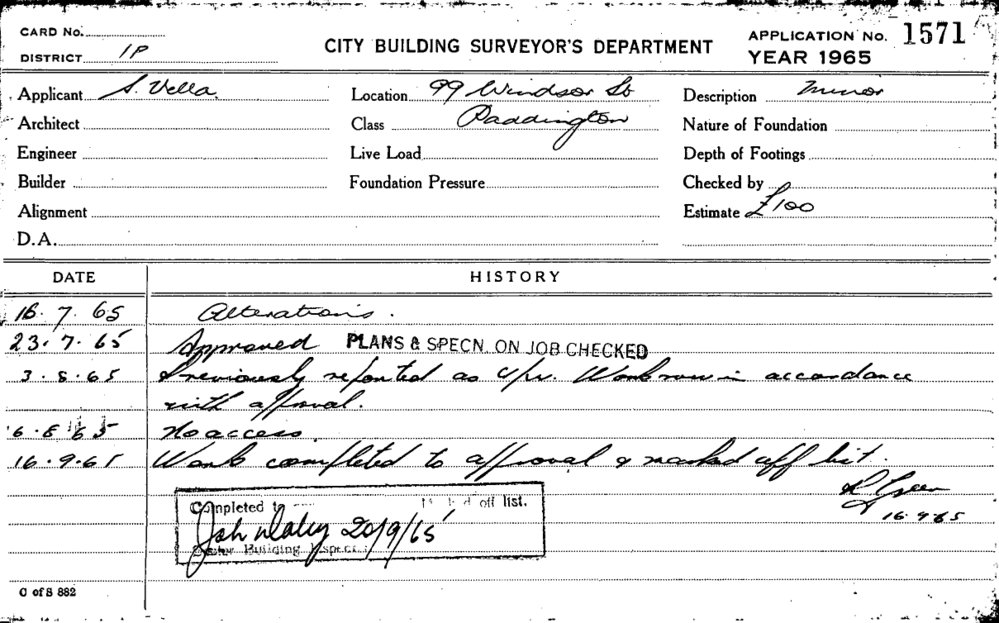 CARD No.
CITY BUILDING SURVEYOR'S DEPARTMENT
APPLICATION No. 1571
DISTRICT 1P
YEAR 1965
Applicant S. Vella.
Location 99 Windsor St
Description Minor
Architect
Class Paddington
Nature of Foundation
Engineer
Live Load
Depth of Footings
Builder
Foundation Pressure
Checked by
Alignment
Estimate £100
D.A.
DATE HISTORY
16. 7. 65 Alterations.
23. 7. 65 Approved PLANS & SPECN. ON JOB CHECKED
3. 8. 65 Previously reported as Work now in accordance
with approval.
16. 8. 65 No access.
16. 9. 65 Work completed to approval & marked off list.
16.9.65
Completed to off list.
20/9/65
Building Inspector
C of S 882